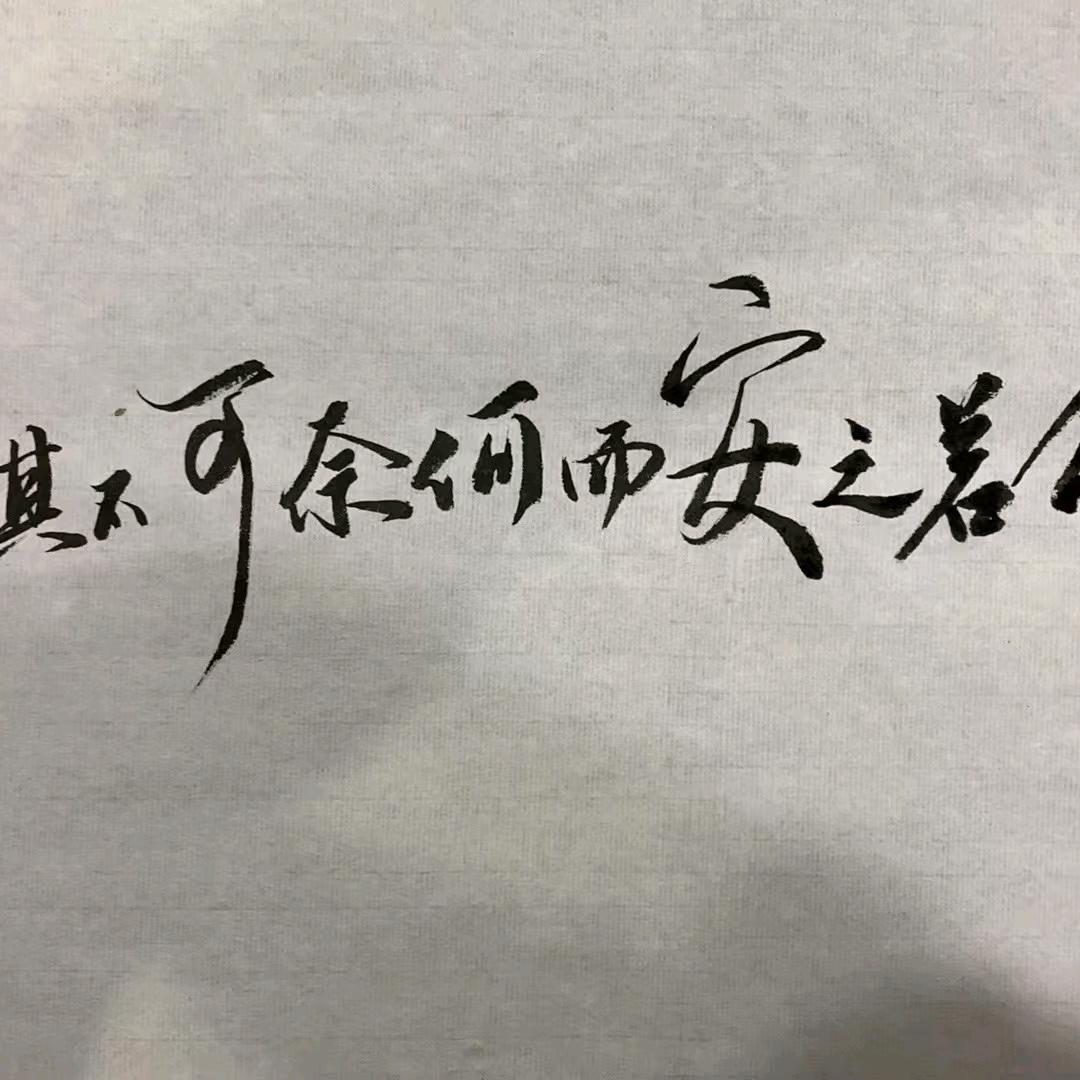 其不可奈何而安之若